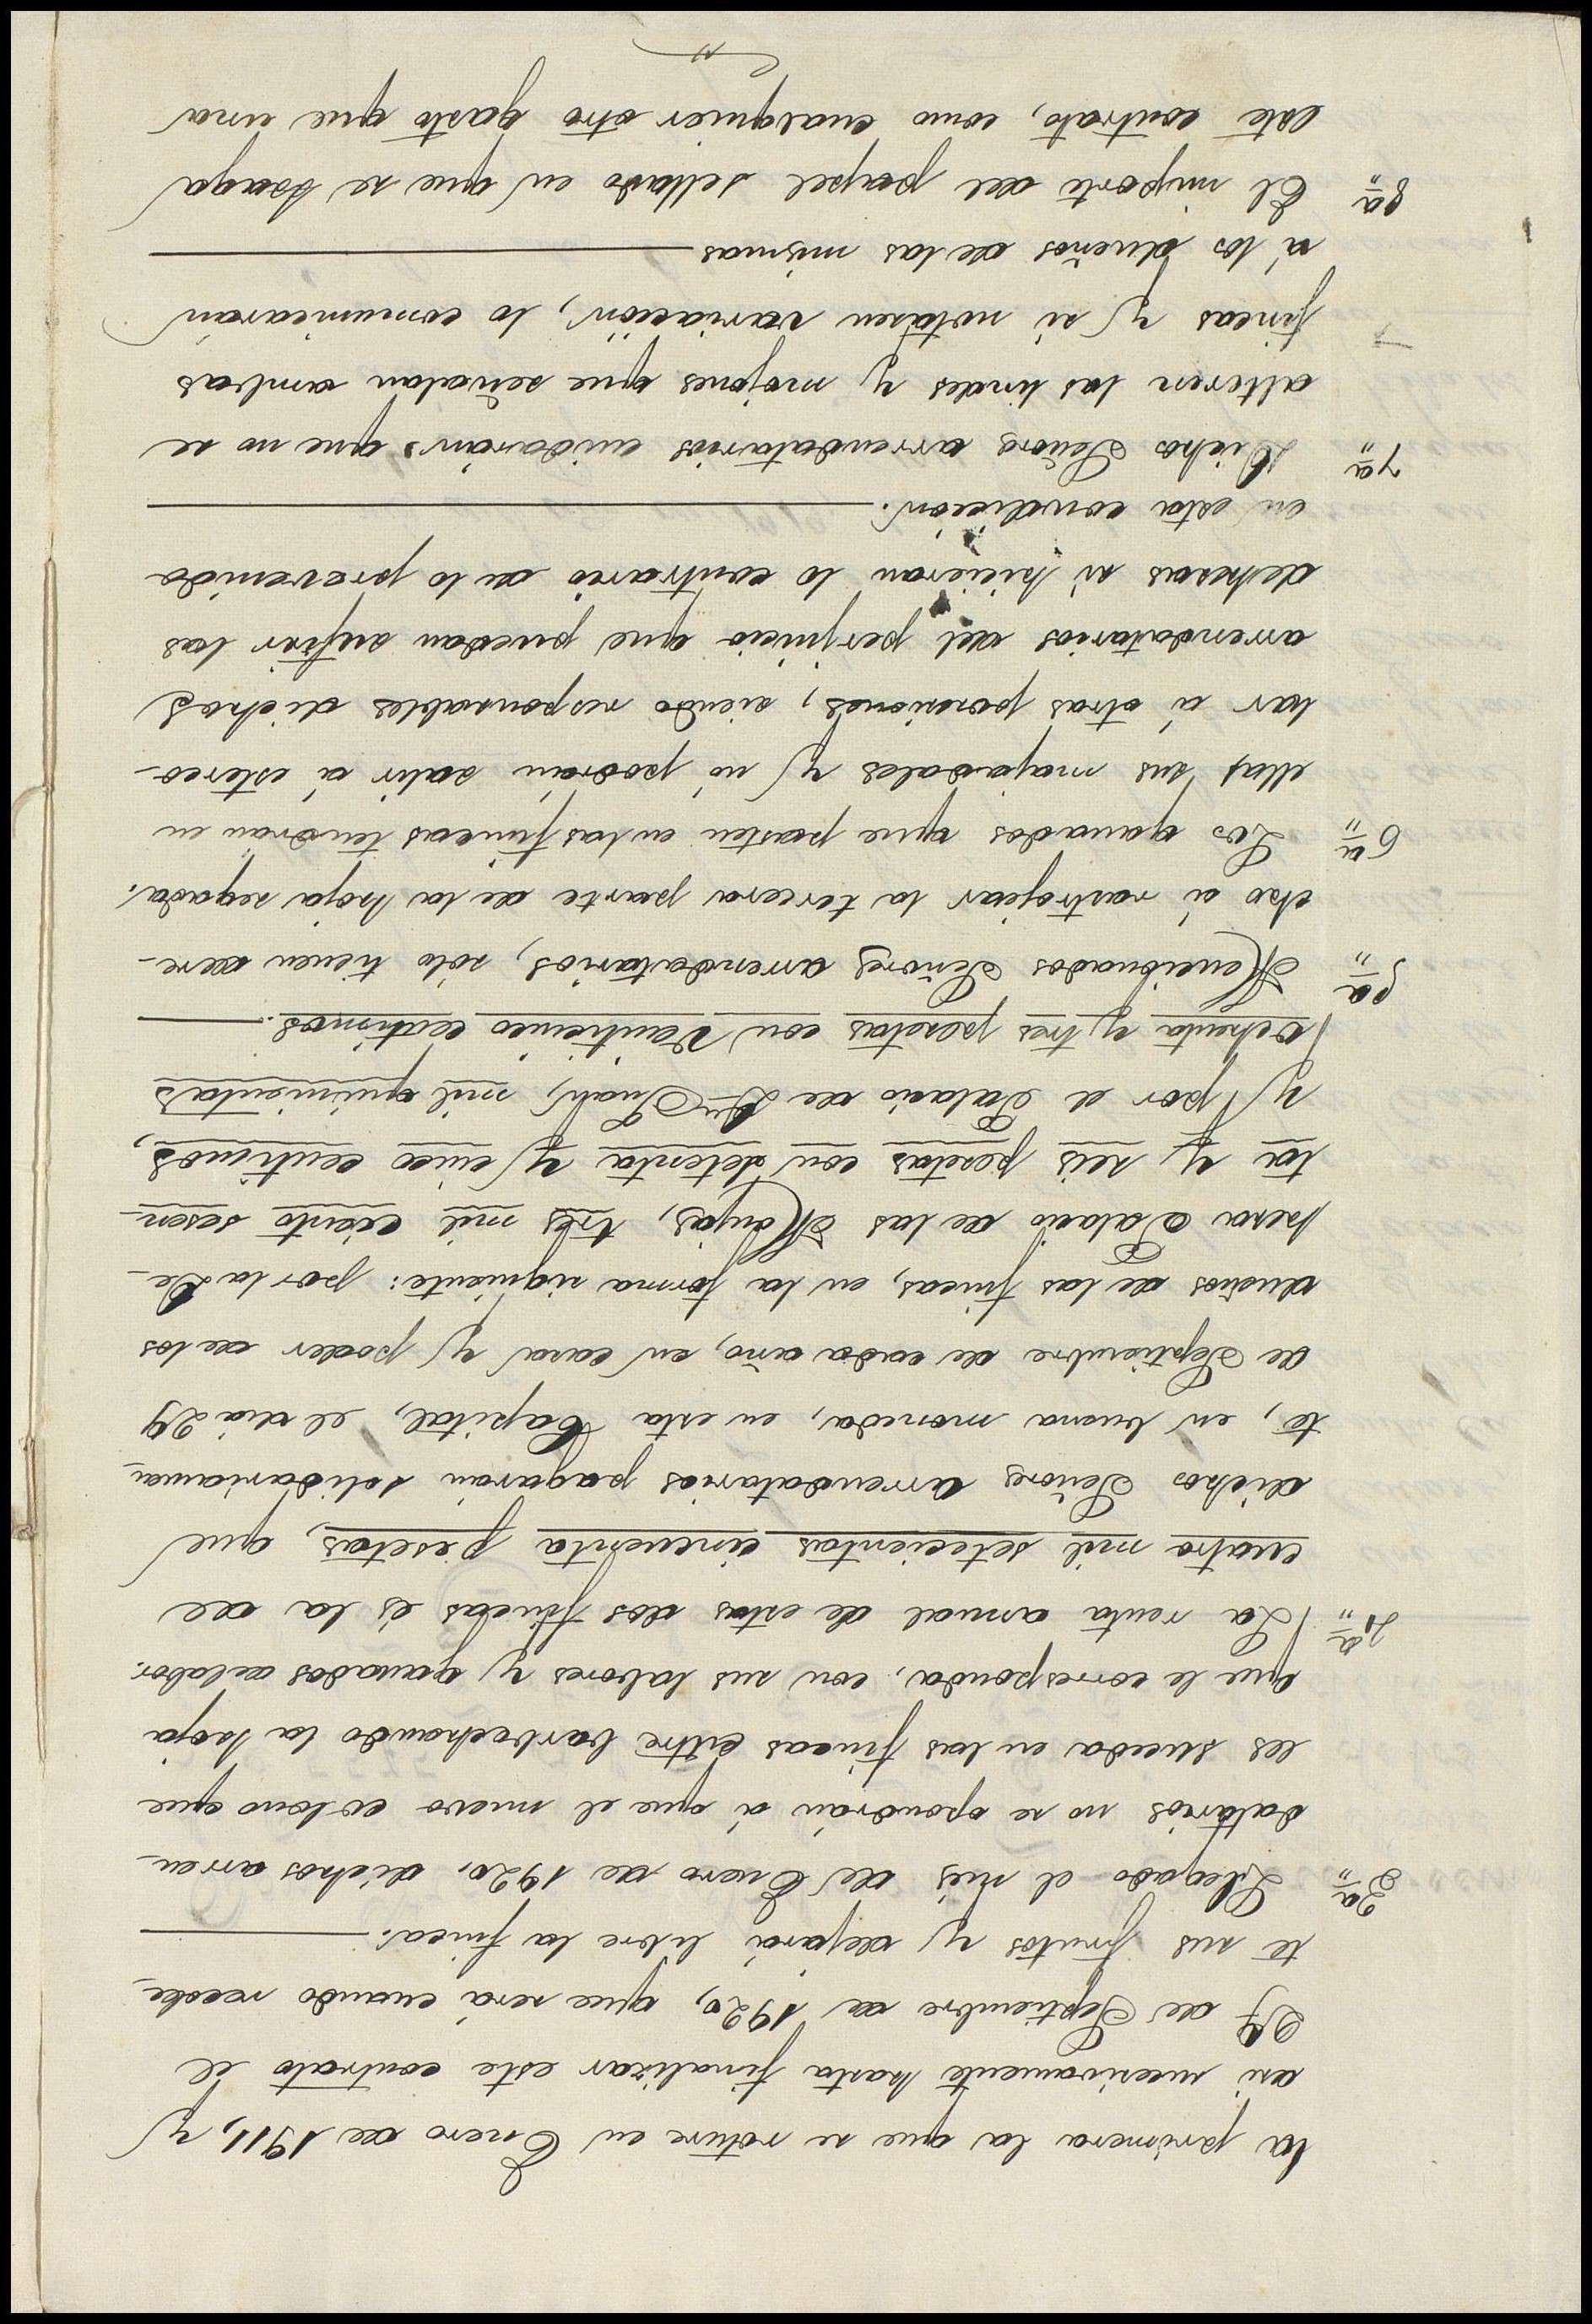 la primera la que se roture en Enero de 1911, y
asi sucesivamente hasta finalizar este contrato el
29 de Septiembre de 1920, que será cuando recole-
te sus frutos y dejará libre la finca.
3ª Llegado el mes de Enero de 1920, dichos arren-
datarios no se opondrán á que el nuevo colono que
les suceda en las fincas entre barbechando la hoja
que le corresponda, con sus labores y ganados de labor.
4ª La renta anual de estas dos fincas es la de
cuatro mil setecientas cincuenta pesetas, que
dichos Señores arrendatarios pagarán solidariamen-
te, en buena moneda, en esta Capital, el dia 29
de Septiembre de cada año, en casa y poder de los
dueños de las fincas, en la forma siguiente: por la De-
hesa Palacio de las Monjas, tres mil ciento sesen-
ta y seis pesetas con setenta y cinco centimos,
y por el Palacio de Dn Juan, mil quinientas
ochenta y tres pesetas con veinticinco centimos.
5ª Mencionados Señores arrendatarios, sólo tienen dere-
cho á rastrojear la tercera parte de la hoja segada.
6ª Los ganados que pasten en las fincas tendrán en
ellas sus majadales y nó podrán salir á esterco-
lar á otras posesiones, siendo responsables dichos
arrendatarios del perjuicio que puedan sufrir las
dehesas si hicieran lo contrario de lo prevenido
en esta condición.
7ª Dichos Señores arrendatarios cuidarán, que no se
alteren las lindes y mojones que señalan ambas
fincas y si notasen variación, lo comunicarán
á los dueños de las mismas
8ª El importe del papel sellado en que se haga
este contrato, como cualquier otro gasto que una